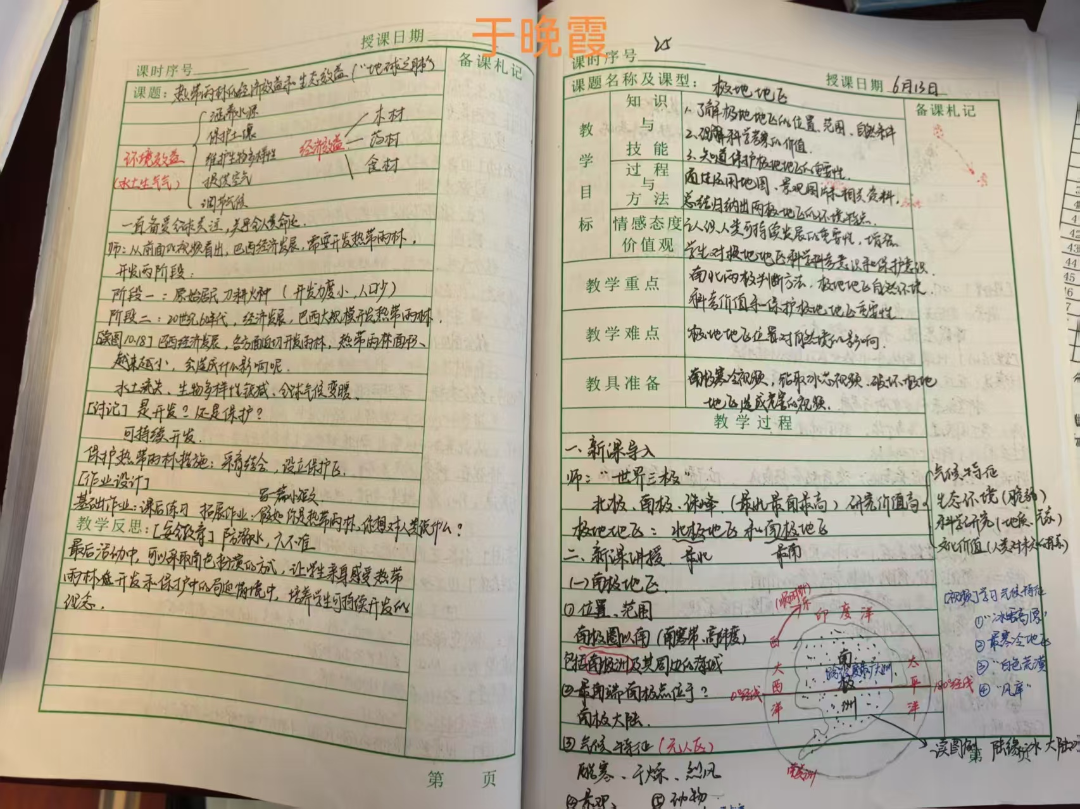 于晚霞
授课日期
课时序号
备课札记
课题：热带雨林的经济效益和生态效益（"地球之肺"）
涵养水源
保护土壤
环境效益
维护生物多样性
经济效益
木材
药材
食材
（水土生气气）
净化空气
调节气候
一直备受全球关注，关乎人类命运
开发两阶段.
阶段一：原始居民刀耕火种（开发力度小，人口少）
阶段二：20世纪60年代，经济发展，巴西大规模开发热带雨林.
越来越小，会造成什么影响呢
水土流失、生物多样性锐减、全球气候变暖.
[讨论] 是开发？还是保护？
可持续开发.
保护热带雨林措施：采育结合，设立保护区.
[作业设计]
写一篇小短文
基础作业：课后练习 拓展作业：假如你是热带雨林，你想对人类说什么？
教学反思：[安全教育] 防溺水，六不准
最后活动中，可以采取角色扮演的方式，让学生亲身感受热带
雨林在开发和保护中的两难情境中，培养学生可持续开发的
观念.
第 页
25
课时序号
课题名称及课型：极地地区
授课日期 6月13日
备课札记
教学目标
知识与技能
1.了解极地地区的位置、范围、自然条件
2.理解科学考察的价值.
3.知道保护极地地区的重要性.
过程与方法
通过运用地图、景观图片和相关资料，
总结归纳出两极地区的环境特点.
情感态度价值观
认识人类可持续发展的重要性，增强
学生对极地地区科学考察意识和保护意识.
教学重点
南北两极判断方法，极地地区自然环境.
科考价值和保护极地地区重要性
教学难点
极地地区位置对自然环境的影响.
教具准备
地区造成危害的视频.
教学过程
一、新课导入
师："世界三极"
北极、南极、珠峰（最北最南最高）研究价值高
气候特征
生态环境（脆弱）
极地地区：北极地区和南极地区
最北 最南
二、新课讲授
(一)南极地区
①位置、范围
南极圈以南（南寒带、高纬度）
包括南极洲及其周边的海域
②最南端南极点位于？
南极大陆.
③气候特征（无人区）
酷寒、干燥、烈风
④景观 ⑤动物
印度洋
大西洋
太平洋
南极洲
0°经线
180°经线
①"冰雪高原"
②最寒冷地区
③"白色荒漠"
④"风库"
第 页